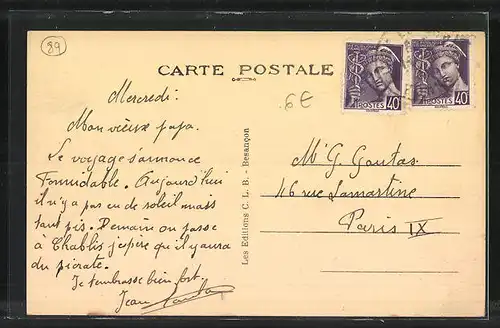 89
CARTE POSTALE
POSTES 40
POSTES 40
6€
Mercredi.
Mon vieux papa.
Le voyage s'annonce
Formidable. Aujourd'hui
il n'y a pas eu de soleil mais
tant pis. Demain on passe
à Chablis j'espère qu'il y aura
du picrate.
Je t'embrasse bien fort.
Jean
Les Editions C. L. B. - Besançon
Mr G. Goutas
46 rue Lamartine
Paris IX